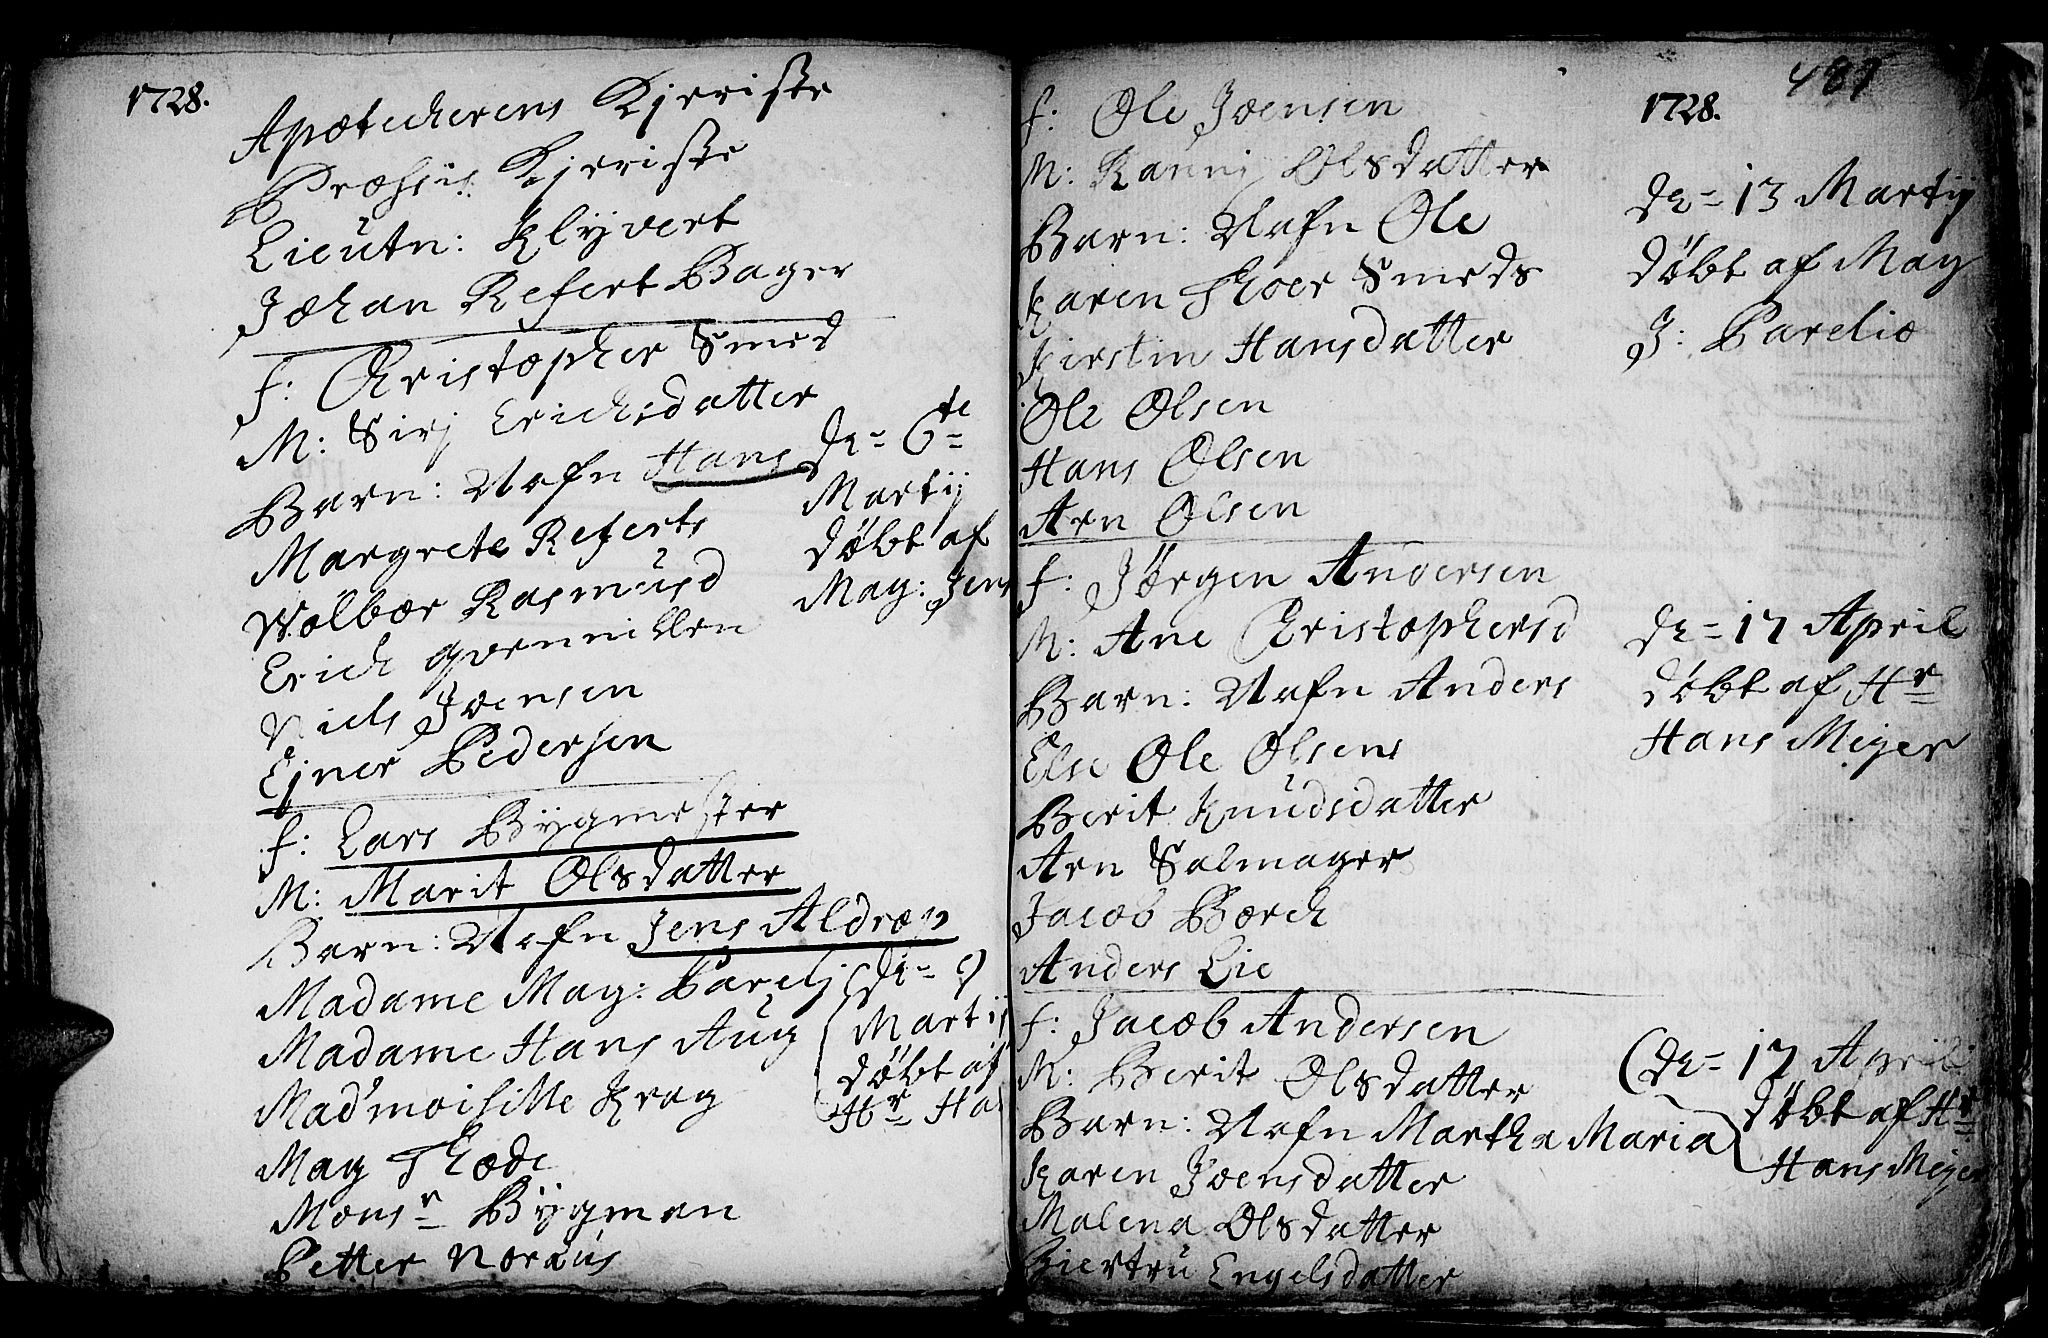 1728.
Apotecherens Kjeriste
Præssis Kjeriste
Lieutn: Klyvert
Johan Refert Bager
f: Christopher Smed
M: Sirj Erichsdatter
Barn: Nafn Hans
Margrete Referts
Wolbor Rasmusd
Erich
Niels Joensen
Ejner Pedersen
de= 6te=
Martij
døbt af
Mag: Jens
f: Lars Bygmester
M: Marit Olsdatter
Barn: Nafn Jens Aldrop
Madame Mag: Parelj
Madame Hans Aug
Mad'moiselle Krag
Mag Thode
Monsr= Bygman
Petter Noraus
de= 9
Martij
døbt af
Hr= Ha
487
1728.
f: Ole Joensen
M: Rannj Olsdatter
Barn: Nafn Ole
Karen Thoer Smeds
Kirstin Hansdatter
Ole Olsen
Hans Olsen
Arn Olsen
de= 13 Martij
døbt af Mag
J: Parelio
f: Jørgen Andersen
M: Ane Christophersd
Barn: Nafn Anders
Else Ole Olsens
Berit Knudsdatter
Arn Salmager
Jacob Borch
Anders Lie
de= 17 April
døbt af Hr=
Hans Meyer
f: Jacob Andersen
M: Berit Olsdatter
Barn: Nafn Martha Maria
Karen Joensdatter
Malena Olsdatter
Giertru Engelsdatter
de= 17 April
døbt af Hr=
Hans Meyer